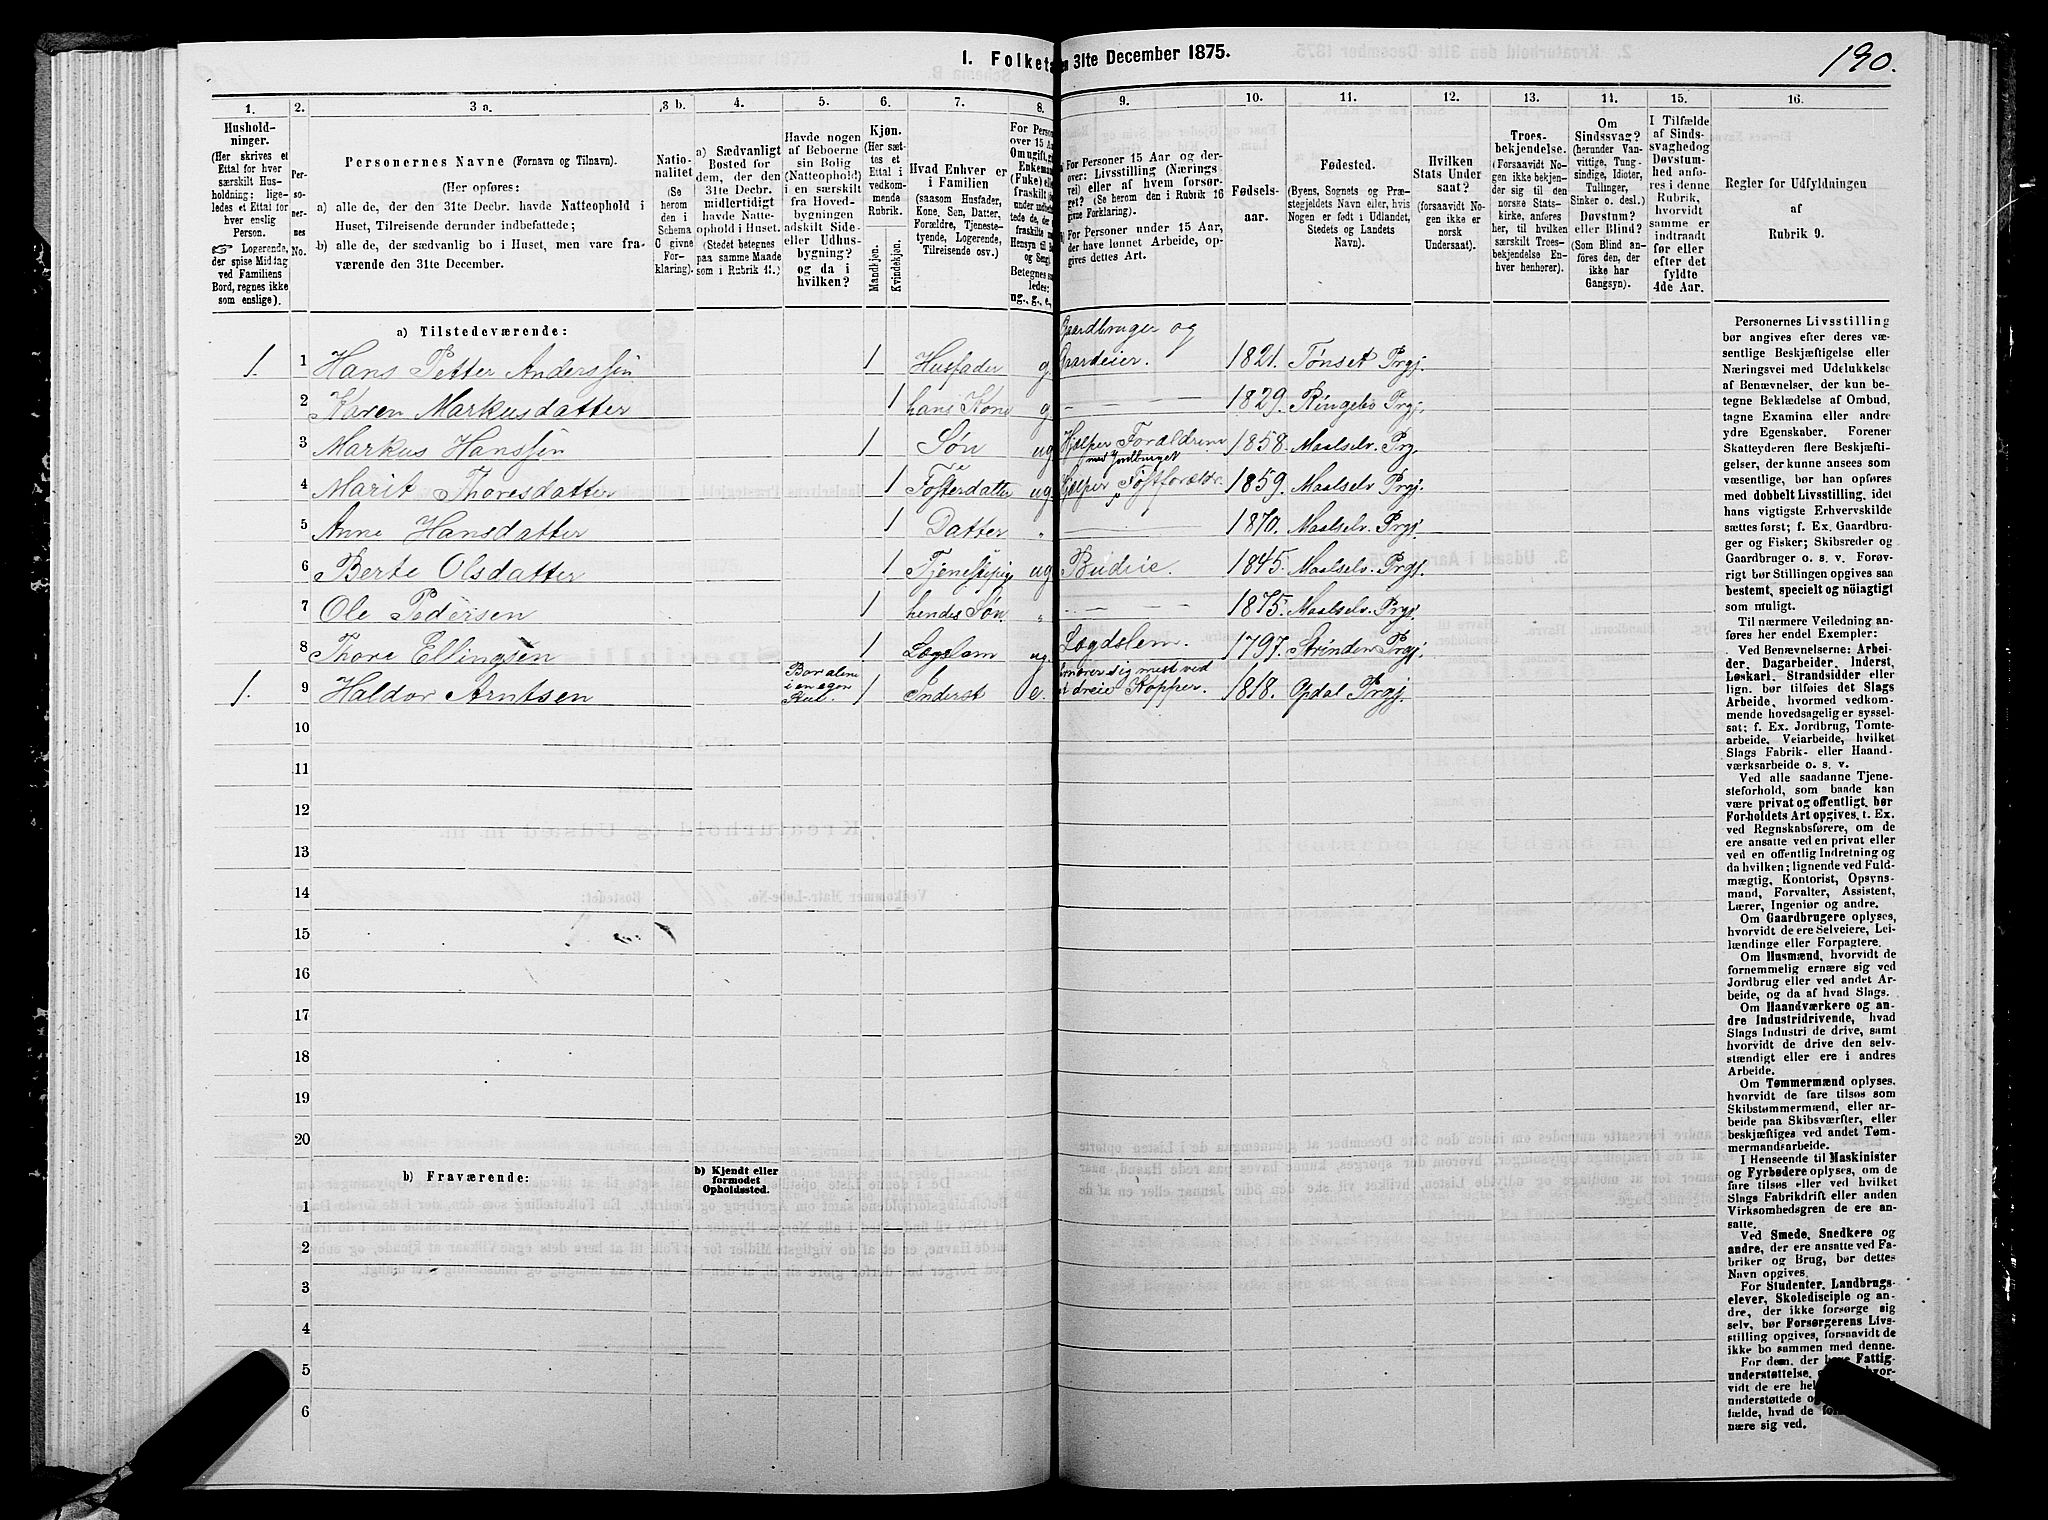 I. Folketa
n 31te December 1875.
190.
1.
2.
3 a.
3 b.
4.
5.
6.
7.
8.
9.
10.
11.
12.
13.
14.
15.
16.
Hushold-
ninger.
(Her skrives et
Ettal for hver
særskilt Hus-
holdning; lige-
ledes et Ettal for
hver enslig
Person.
☞ Logerende,
der spise Middag
ved Familiens
Bord, regnes ikke
som enslige).
Per-
so-
ner-
nes
No.
Personernes Navne (Fornavn og Tilnavn).
(Her opføres:
a) alle de, der den 31te Decbr. havde Natteophold i
Huset, Tilreisende derunder indbefattede;
b) alle de, der sædvanlig bo i Huset, men vare fra-
værende den 31te December.
Natio-
nalitet
(Se
herom
den i
Schema
C givne
For-
klaring).
a) Sædvanligt
Bosted for
dem, der den
31te Decbr.
midlertidigt
havde Natte-
ophold i Huset.
(Stedet betegnes
paa samme Maade
som i Rubrik 11.)
Havde nogen
af Beboerne
sin Bolig
(Natteophold)
i en særskilt
fra Hoved-
bygningen
adskilt Side-
eller Udhus-
bygning?
og da i
hvilken?
Kjøn.
(Her sæt-
tes et
Ettal i
vedkom-
mende
Rubrik.
Mandkjøn.
Kvindekjøn.
Hvad Enhver er
i Familien
(saasom Husfader,
Kone, Søn, Datter,
Forældre, Tjeneste-
tyende, Logerende,
Tilreisende osv.)
For Person
over 15 Aar
Om ugift, gi
Enkeman
(Fuke) elle
fraskilt
Betegnes saa
ledes:
ug., g., e.,
For Personer 15 Aar og der-
over: Livsstilling (Nærings-
vei) eller af hvem forsør-
get? (Se herom den i Rubrik 16
givne Forklaring).
For Personer under 15 Aar,
der have lønnet Arbeide, op-
gives dettes Art.
Fødsels-
aar.
Fødested.
(Byens, Sognets og Præ-
stegjeldets Navn eller, hvis
Nogen er født i Udlandet,
Stedets og Landets
Navn).
Hvilken
Stats Under
saat?
(forsaavidt No-
gen ikke er
norsk
Undersaat).
Troes-
bekjendelse.
(Forsaavidt No-
gen ikke bekjen-
der sig til den
norske Stats-
kirke, anføres
her, til hvilken
særskilt Troes-
bekjendelse En-
hver henhører).
Om
Sindssvag?
(herunder Van-
vittige, Tung-
sindige, Idioter,
Tullinger,
Sinker o. desl.)
Døvstum?
eller Blind?
(Som Blind an-
føres den, der
ikke har
Gangsyn).
I Tilfælde
af Sinds-
svaghed og
Døvstum-
hed anfø-
res i denne
Rubrik,
hvorvidt
samme er
indtraadt
før eller
efter det
fyldte
4de Aar.
Regler for Udfyldningen
af
Rubrik 9.
a) Tilstedeværende:
Gaardbruger og
1. 1 Hans Petter Anderssen 1 Husfader g. Gaardeier. 1821. Tønset Prgj.
2 Karen Markusdatter 1 hans Kone g. — — 1829. Ringebo Prgj.
3 Markus Hanssen 1 Søn ug Hjælper Forældrene 1858. Maalselv. Prg.
med Jordbruget
4 Marit Thoresdatter 1 Fosterdatter ug. Hjælper 1859. Maalselv Prgj.
5 Anne Hansdatter 1 Datter „ — 1870. Maalselv. Prgj.
6 Berte Olsdatter 1 Tjenestepig ug. Budeie. 1845. Maalselv. Prgj.
7 Ole Pedersen 1 hendes Søn „ — — 1875. Maalselv. Prgj.
8 Thore Ellingsen 1 Lægslem ug. Lægdslem. 1797. Strinden Prgj.
Bor alene
i en egen
Stue.
1. 9 Haldor Arntsen 1 Inderst e. ernærer sig mest ved
at dreie Kopper. 1818. Opdal Prgj.
10
11
12
13
14
15
16
17
18
19
20
b) Fraværende:
b) Kjendt eller
formodet
Opholdssted.
1
2
3
4
5
6
Personernes Livsstilling
bør angives efter deres væ-
sentlige Beskjæftigelse eller
Næringsvei med Udelukkelse
af Benævnelser, der kun be-
tegne Beklædelse af Ombud,
tagne Examina eller andre
ydre Egenskaber. Forener
Skatteyderen flere Beskjæfti-
gelser, der kunne ansees som
væsentlige, bør han opføres
med dobbelt Livsstilling, idet
hans vigtigste Erhvervskilde
sættes først; f. Ex. Gaardbru-
ger og Fisker; Skibsreder og
Gaardbruger o. s. v. Forøv-
rigt bør Stillingen opgives saa
bestemt, specielt og nöiagtigt
som muligt.
Til nærmere Veiledning an-
føres her endel Exempler:
Ved Benævnelserne: Arbei-
der, Dagarbeider, Inderst,
Løskarl, Strandsidder eller
lign. bør tilføies det Slags
Arbeide, hvormed vedkom-
mende hovedsagelig er syssel-
sat; f. Ex. Jordbrug, Tomte-
arbeide, Veiarbeide, hvilket
Slags Fabrik- eller Haand-
værksarbeide o. s. v.
Ved alle saadanne Tjene-
steforhold, som baade kan
være privat og offentligt, bør
Forholdets Art opgives, t. Ex.
ved Regnskabsførere, om de
ere ansatte ved en privat eller
ved en offentlig Indretning og
da hvilken; lignende ved Fuld-
mægtig, Kontorist, Opsyns-
mand, Forvalter, Assistent,
Lærer, Ingeniør og andre.
Om Gaardbrugere oplyses,
hvorvidt de ere Selveiere, Lei-
lændinge eller Forpagtere.
Om Husmænd, hvorvidt de
fornemmelig ernære sig ved
Jordbrug eller ved andet Ar-
beide, og da af hvad Slags.
Om Haandværkere og an-
dre Industridrivende, hvad
Slags Industri de drive, samt
hvorvidt de drive den selv-
stændigt eller ere i andres
Arbeide.
Om Tømmermænd oplyses,
hvorvidt de fare tilsøs som
Skibstømmermænd, eller ar-
beide paa Skibsværfter, eller
beskjæftiges ved andet Tøm-
mermandsarbeide.
I Henseende til Maskinister
og Fyrbødere oplyses, om de
fare tilsøs eller ved hvilket
Slags Fabrikdrift eller anden
Virksomhedsgren de ere an-
satte.
Ved Smede, Snedkere og
andre, der ere ansatte ved Fa-
briker og Brug, bør dettes
Navn opgives.
For Studenter, Landbrugs-
elever, Skoledisciple og an-
dre, der ikke forsørge sig
selv, bør Forsørgerens Livs-
stilling opgives, forsaavidt de
ikke bo sammen med denne.
For dem, der have Fattig-
understøttelse,
vidt de ere
understøttede
fælde, hvad de
nære sig ved.